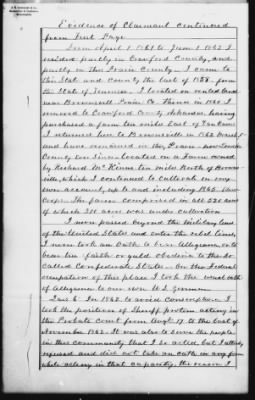 Evidence of Claimant continued
from First Page
From April 1 1861 to June 1 1862 I
resided partly in Crawford County, and
partly in this Prairie County. I came to
this State and county the last of 1858 from
the State of Tennessee. I located on rented land
near Brownsville Prairie Co. Thence in 1860 I
removed to Crawford County Arkansas, having
purchased a farm ten miles East of Van Buren.
I returned here to Brownsville in 1862
and have remained in this Prairie now
County ever since located on a farm owned
by Richard McKinnie ten miles North of Browns-
ville, which I continued to cultivate on my
own account, up to and including 1865.
The farm comprised in all 520 acres
of which 311 acres was under cultivation
I never passed beyond the military lines
of the United States and enter the rebel lines,
I never took an oath to bear allegiance, or to
bear true faith or yield obedience to the so-
called Confederate States. On the Federal
occupation of this place I took the usual oath
of allegiance to our own U.S. Government
Ques 6. In 1862 to avoid conscription I
took the position of Sheriff protem acting in
the Probate Court from Augt 17 to the last of
November 1862. It was also to serve the people
in this community that I so acted, but I utterly
refused and did not take an oath in any form
while acting in that capacity, the reason I